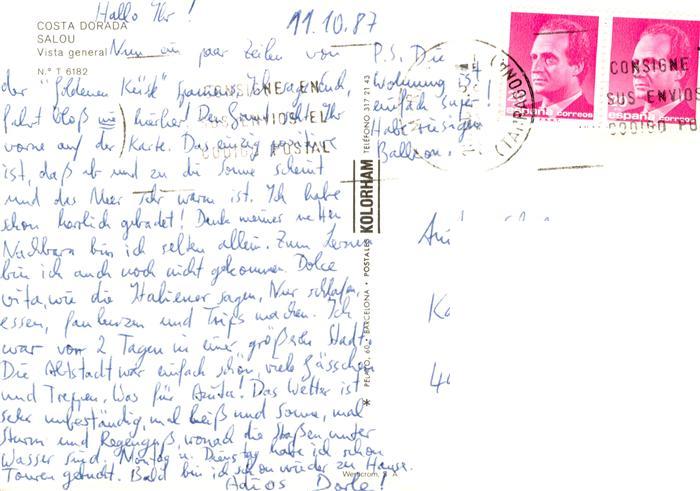 Hallo Ihr!
11.10.87
COSTA DORADA
SALOU
Vista general
N.° T 6182
Nun ein paar Zeilen von
der "goldenen Küste" Spaniens. Ich sag Euch,
fahrt bloß nie hierher! Den Sonne seht Ihr
vorne auf der Karte. Das einzig
ist, daß ab und zu die Sonne scheint
und das Meer sehr warm ist. Ich habe
schon herrlich gebadet! Dank meiner netten
Nachbarn bin ich selten allein. Zum Lernen
bin ich auch noch nicht gekommen. Dolce
vita, wie die Italiener sagen. Nur schlafen,
essen, faulenzen und Trips machen. Ich
war vor 2 Tagen in einer größeren Stadt.
Die Altstadt war einfach schön, viele Gässchen
und Treppen. Was für Anita! Das Wetter ist
sehr unbeständig, mal heiß und Sonne, mal
Sturm und Regenguß, wonach die Straßen unter
Wasser sind. Montag u. Dienstag habe ich schon
Touren gebucht. Bald bin ich schon wieder zu Hause.
Adios Dorle!
P.S. Die
Wohnung ist
einfach super!
Habe riesigen
Balkon.
CONSIGNE EN
SUS ENVIOS EL
CODIGO POSTAL
(TARRAGONA)
CONSIGNE
SUS ENVIOS
CODIGO PO
españa correos
españa correos
POSTALES KOLORHAM TELÉFONO 317 21 43
PELAYO, 60 - BARCELONA